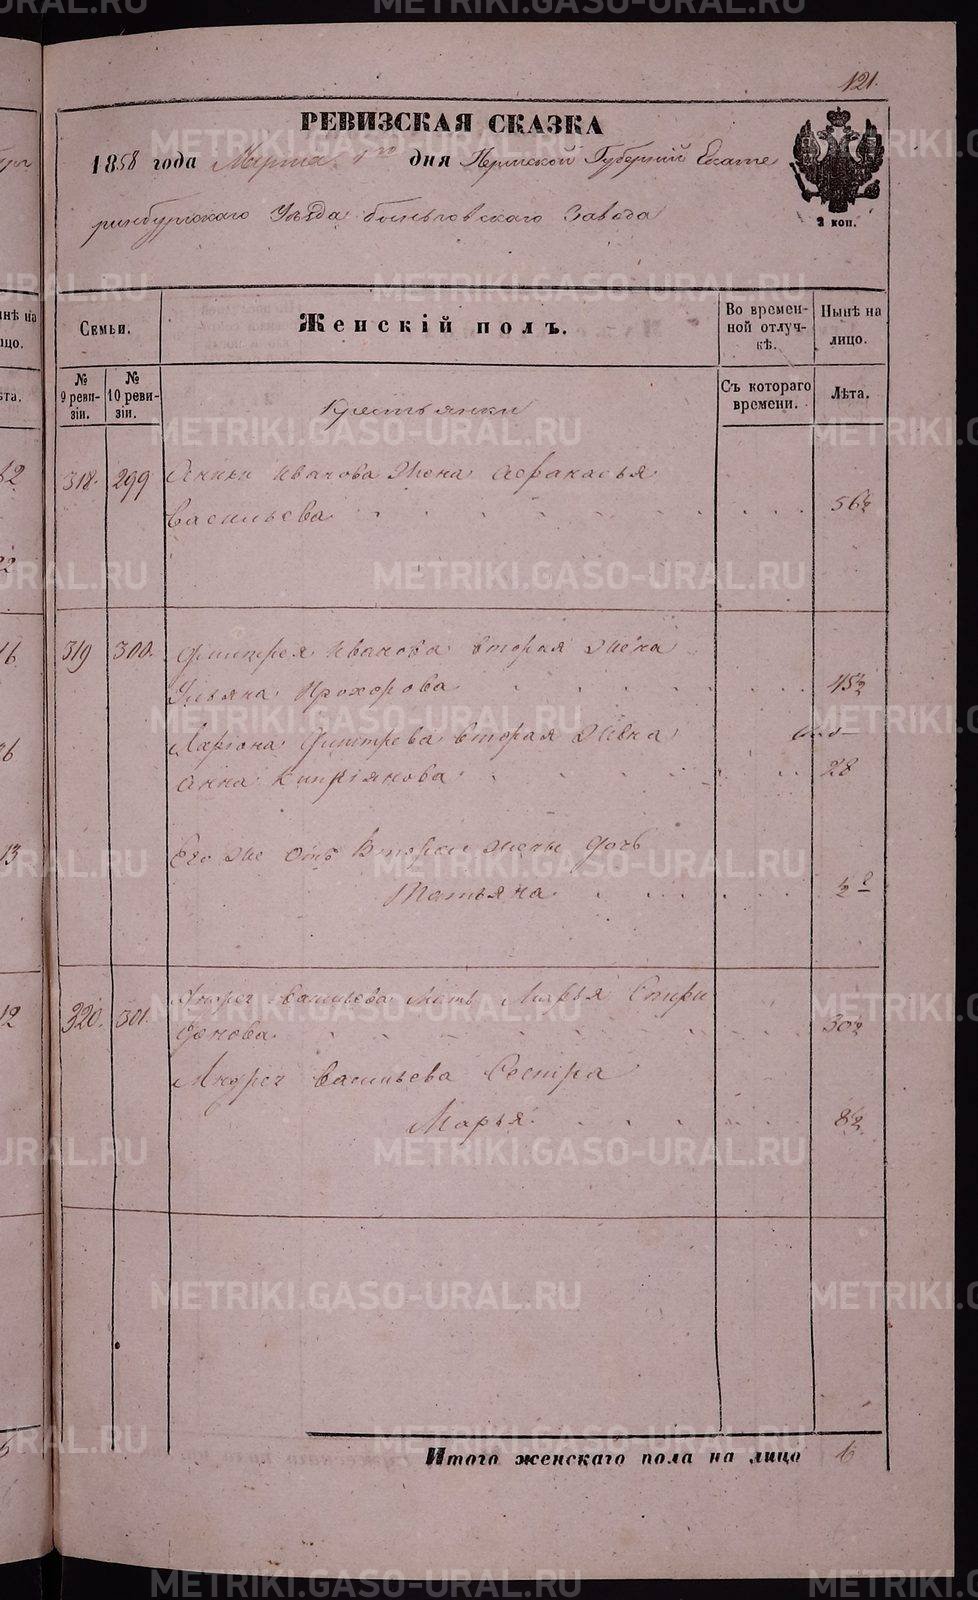 121.
РЕВИЗСКАЯ СКАЗКА
1858 года Марта 1го дня Пермской Губерній Екате
ринбургскаго Уѣзда Быньговскаго Завода
2 коп.
Семьи.
Женскій полъ.
Во времен-
ной отлуч-
кѣ.
Нынѣ на
лицо.
№
9 реви-
зіи.
№
10 реви-
зіи.
Съ котораго
времени.
Лѣта.
Крестьянки
318. 299 Иванова Жена Афанасья
Васильева 56½
319 300. Дмитрея Иванова вторая Жена
Ульяна Прохорова 45½
Ларіона Дмитрева вторая Жена
Анна Кипріянова 28
Его же Отъ Второй жены дочь
Татьяна ½
320. 301. Андрея Васильева Мать Марья Спири
донова 30½
Андрея Васильева Сестра
Марья 8½
Итого женскаго пола на лицо 6
METRIKI.GASO-URAL.RU